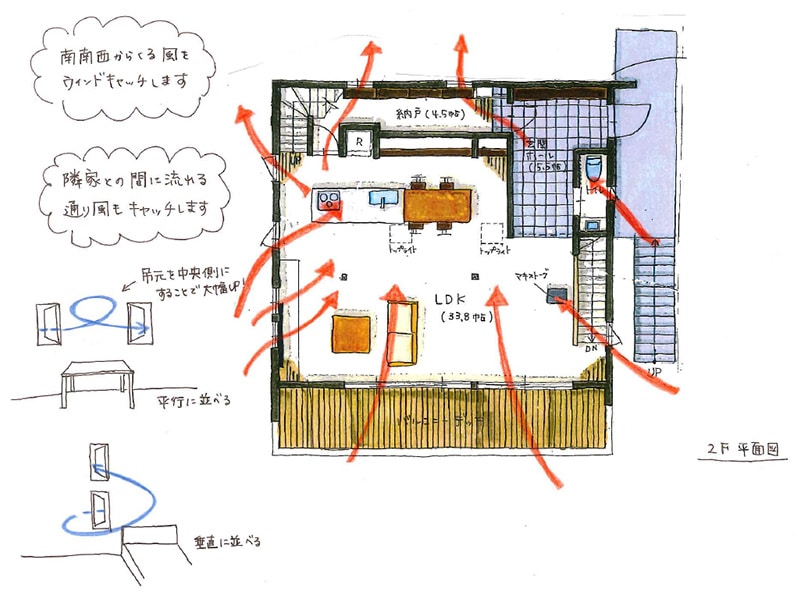 南南西からくる風を
ウィンドキャッチします
隣家との間に流れる
通り風もキャッチします
吊元を中央側に
することで大幅UP!
平行に並べる
垂直に並べる
納戸(4.5帖)
R
UP
玄関
ホール
(5.5帖)
トイレ
トップライト
トップライト
マキストーブ
LDK
(33.8帖)
DN
UP
バルコニーデッキ
2F 平面図